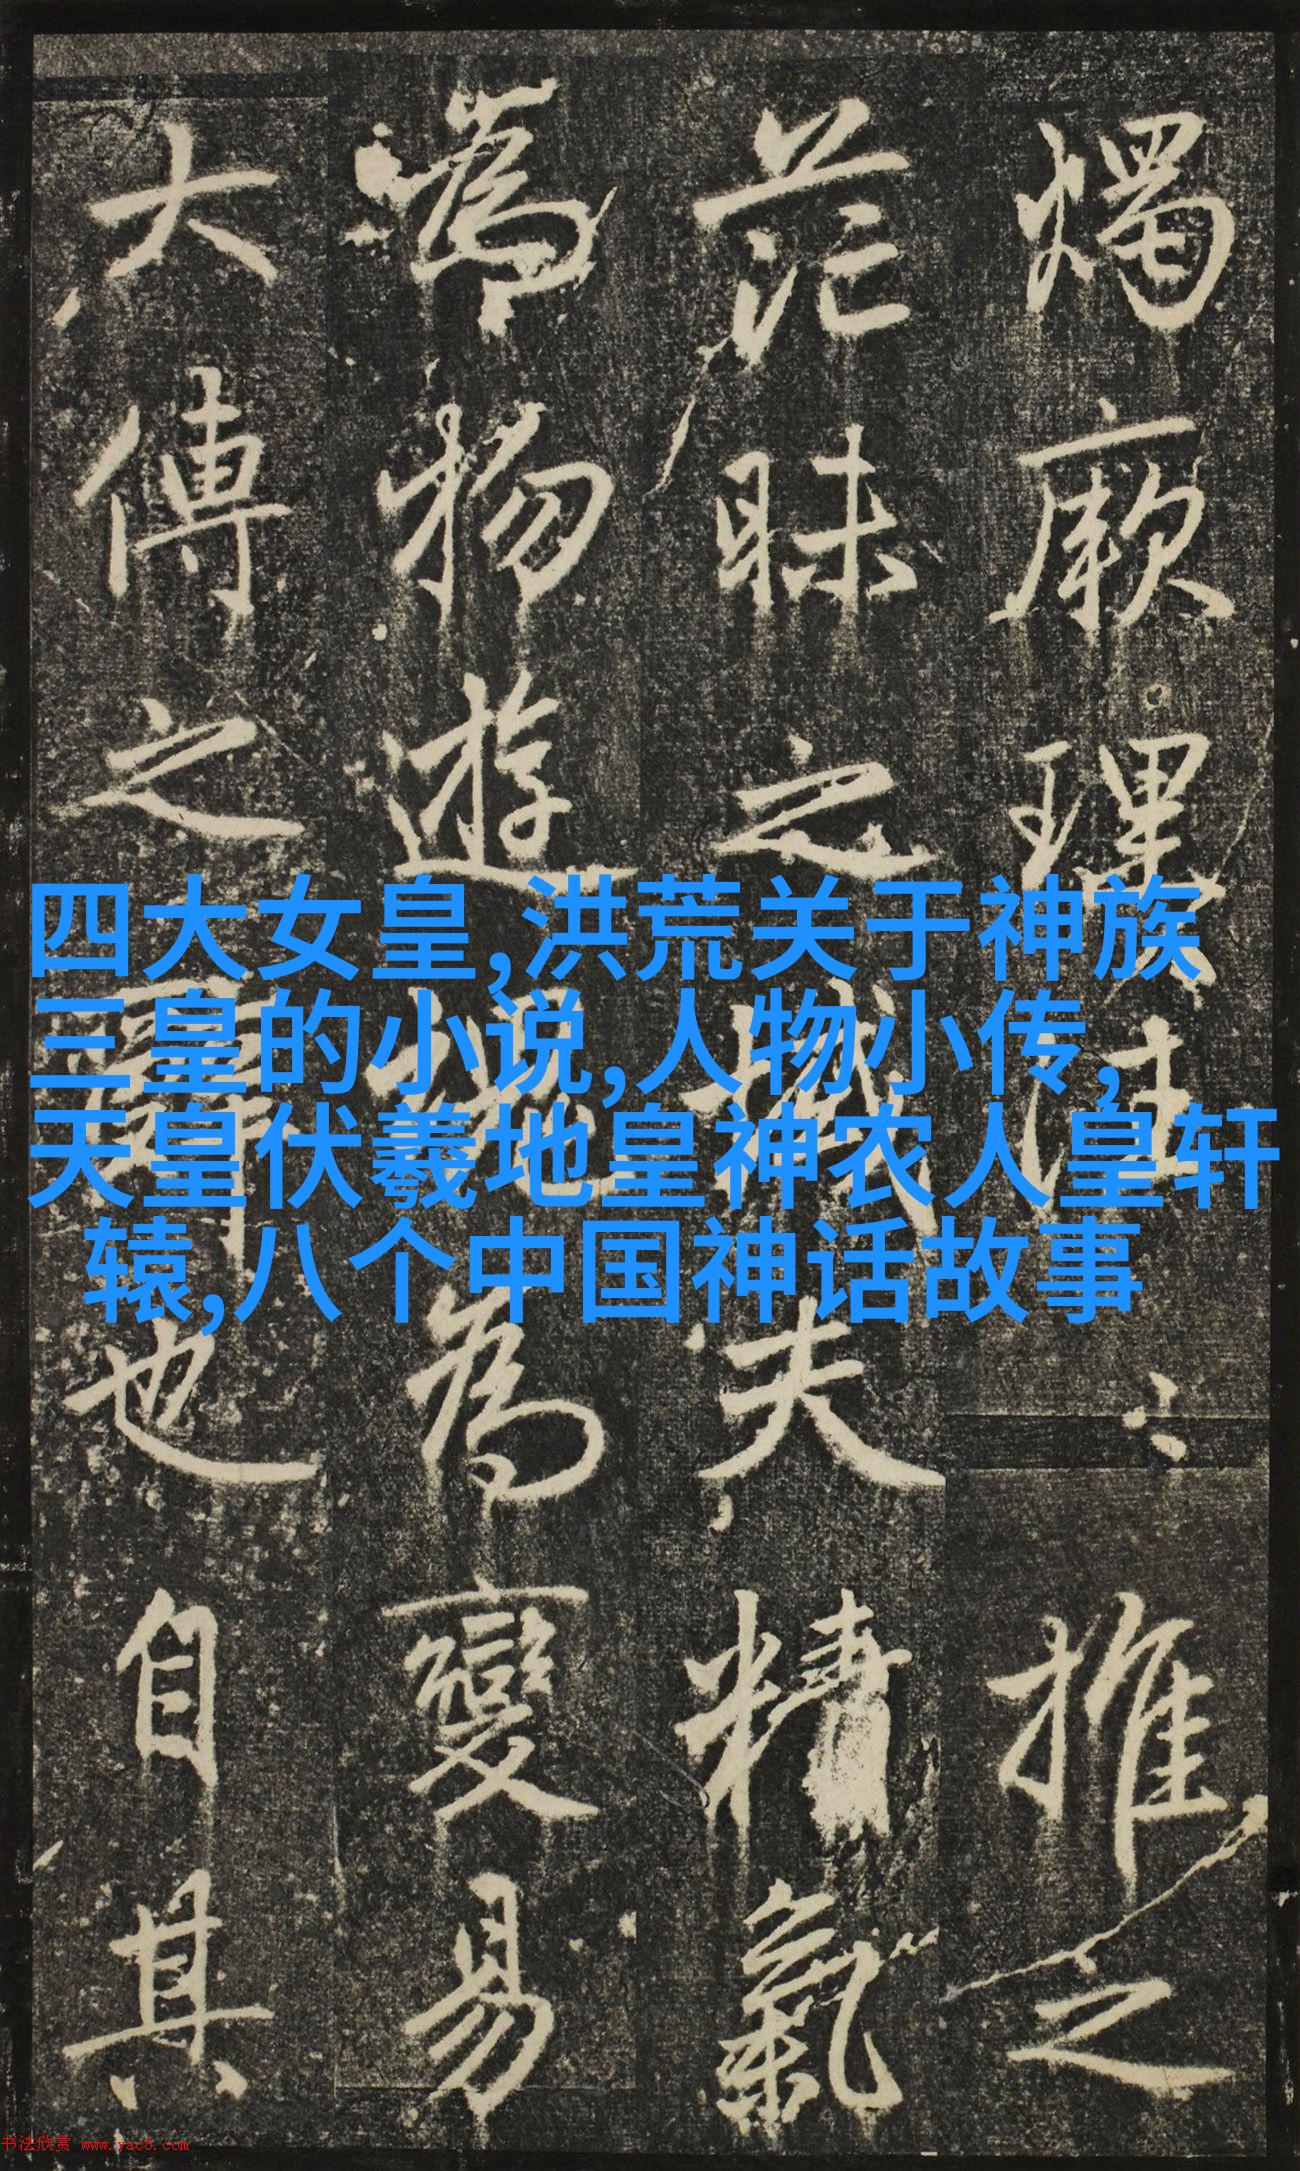 燭厥理推之
茫昧之域夫精氣
為物遊魂為變易
大傳之也自其
四大女皇,洪荒关于神族
三皇的小说,人物小传,
天皇伏羲地皇神农人皇轩
辕,八个中国神话故事
书法欣赏 www.yac8.com